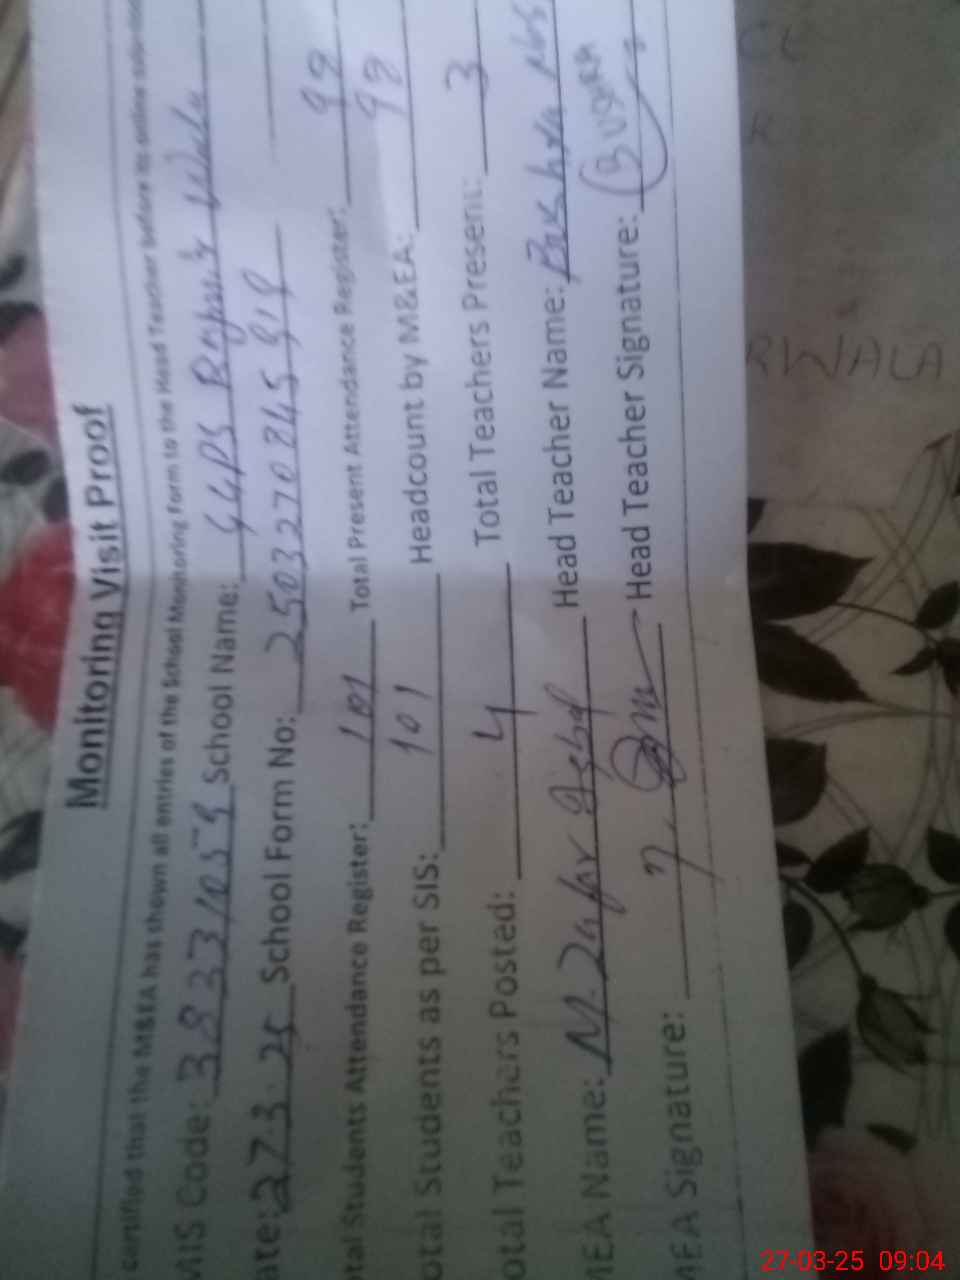 Monitoring Visit Proof
certified that the M&EA has shown all entries of the School Monitoring Form to the Head Teacher before its online
MIS Code: School Name: GGPS
ate: 27 3 25 School Form No:
otal Students Attendance Register: 101 Total Present Attendance Register: 98
otal Students as per SIS: 101 Headcount by M&EA: 98
otal Teachers Posted: 4 Total Teachers Present: 3
MEA Name: M. Zafar Head Teacher Name: Bushra
MEA Signature: Head Teacher Signature: BUSHRA
RWALA
27-03-25 09:04